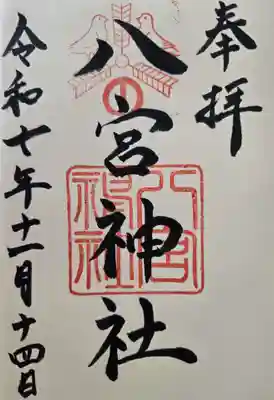 奉拝
八宮神社
八宮神社
令和七年十一月十四日